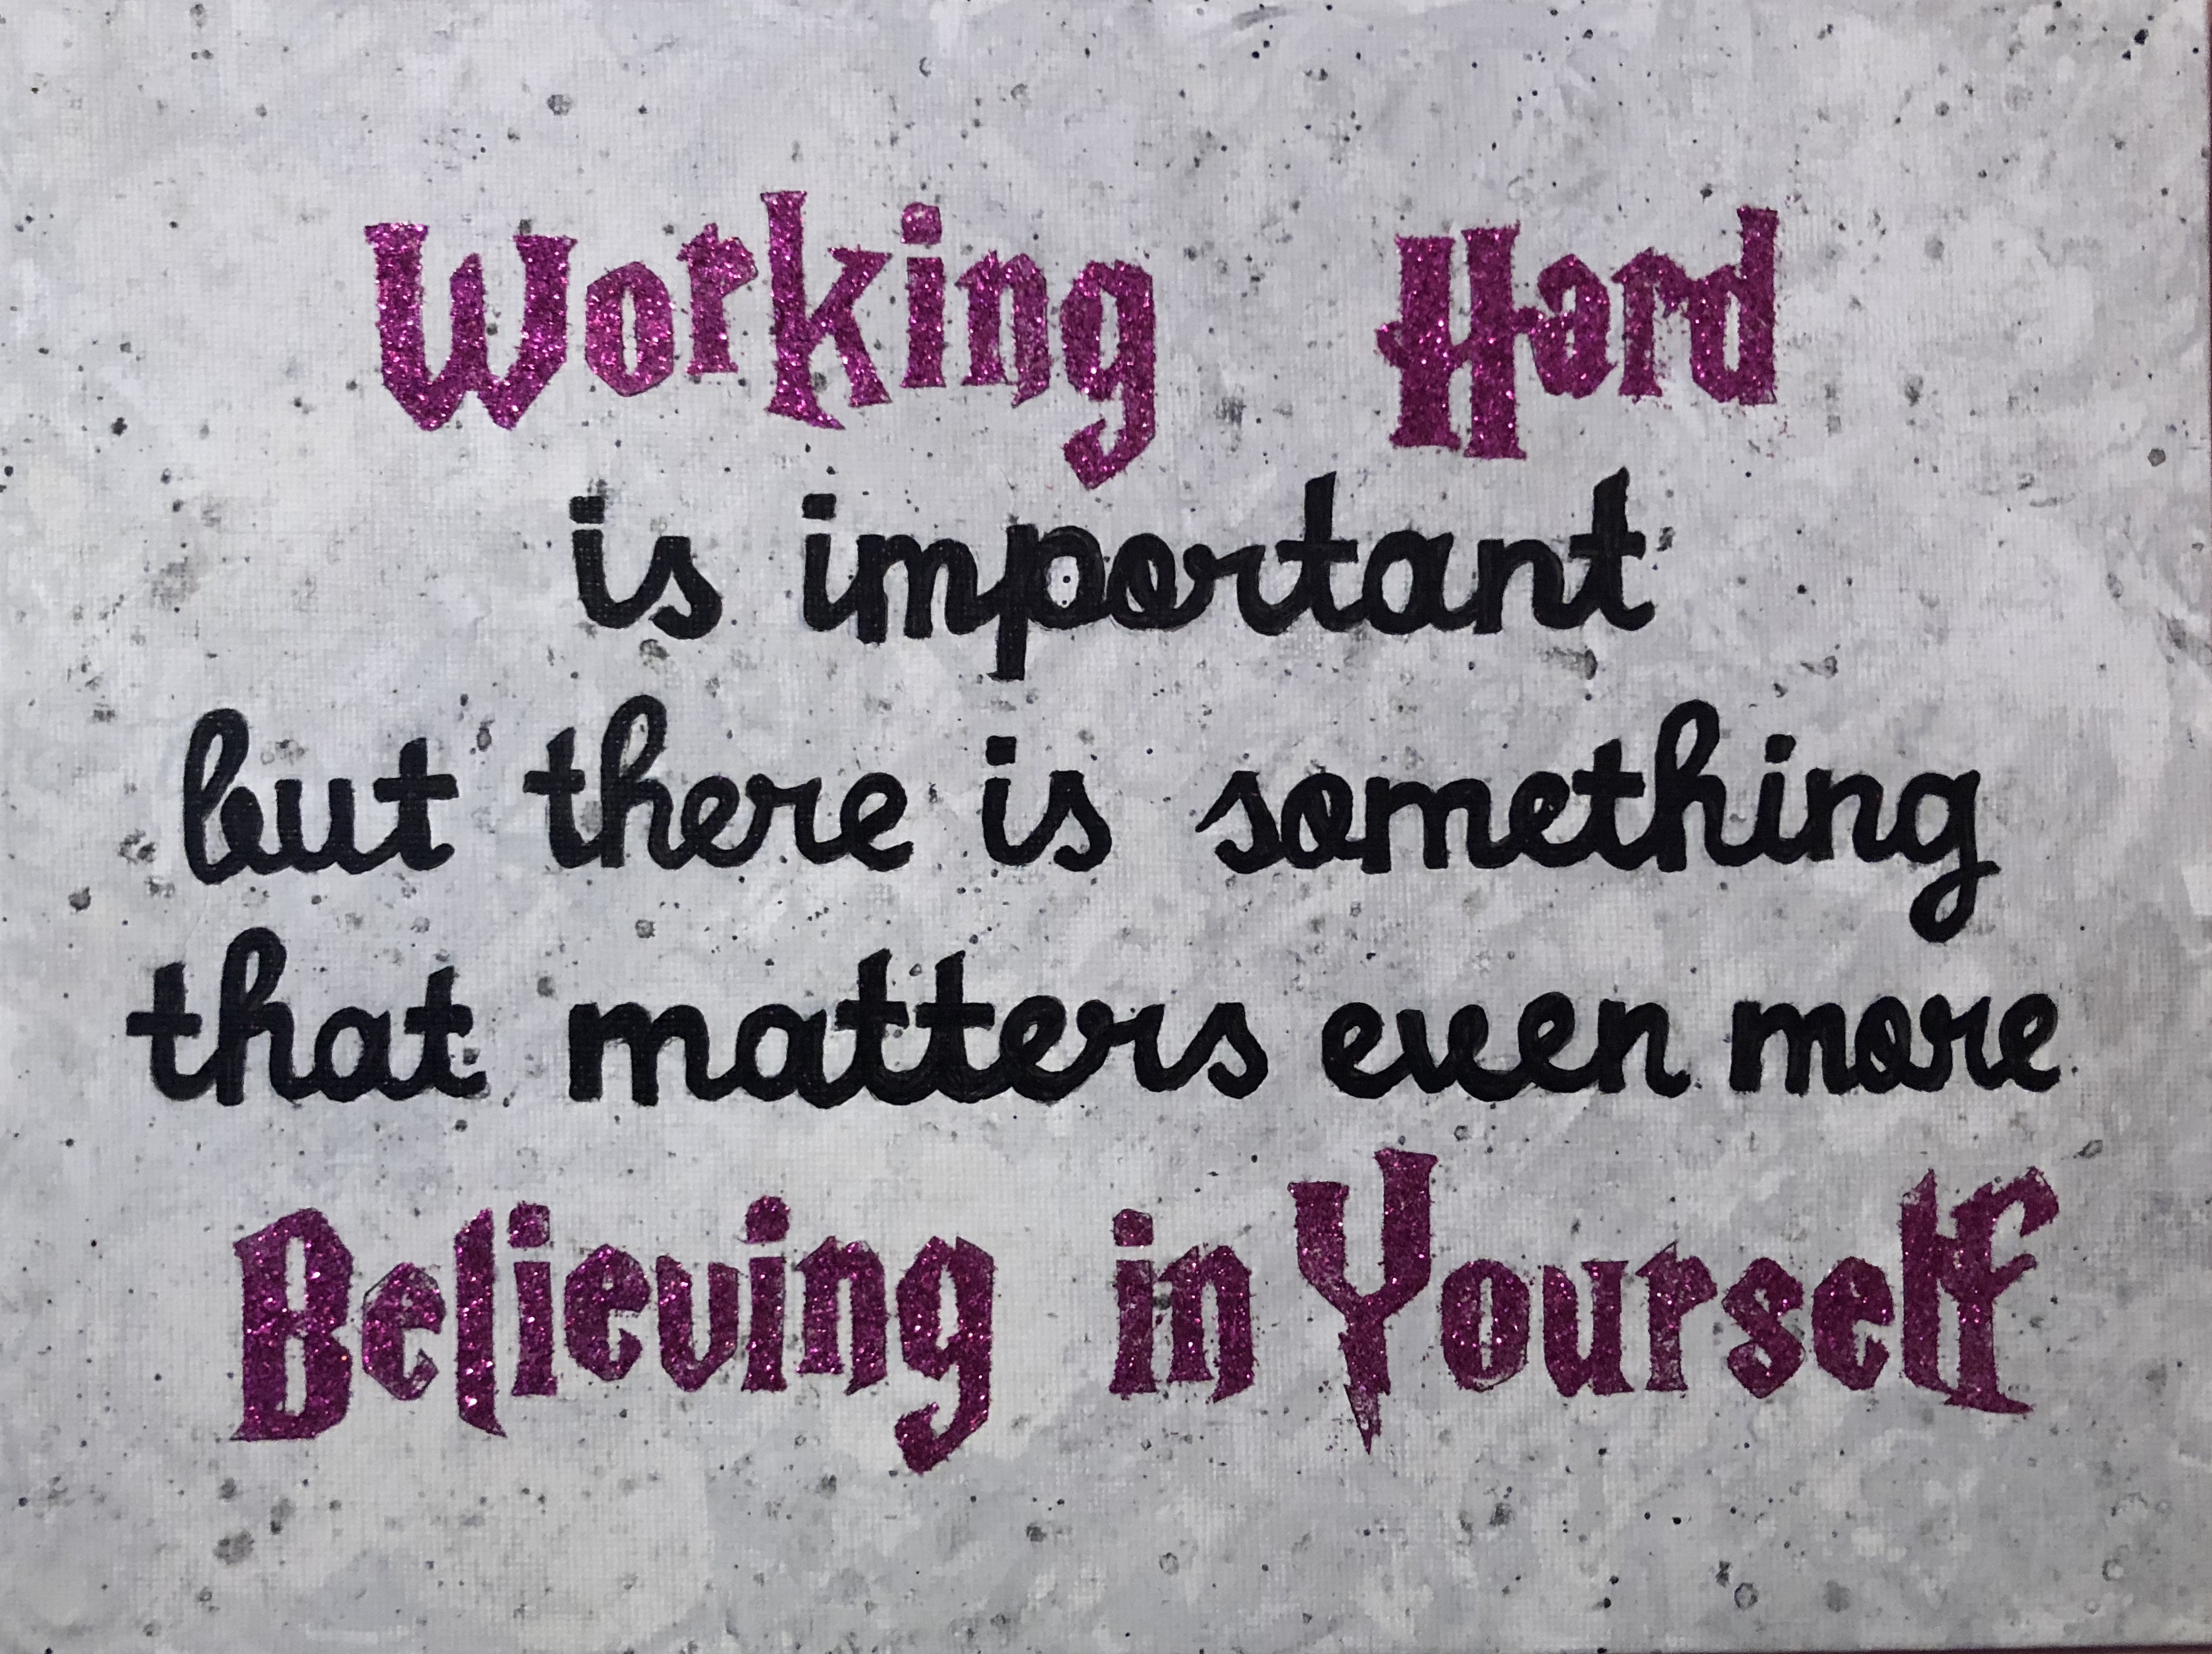 Working Hard
is important
but there is something
that matters even more
Believing in Yourself